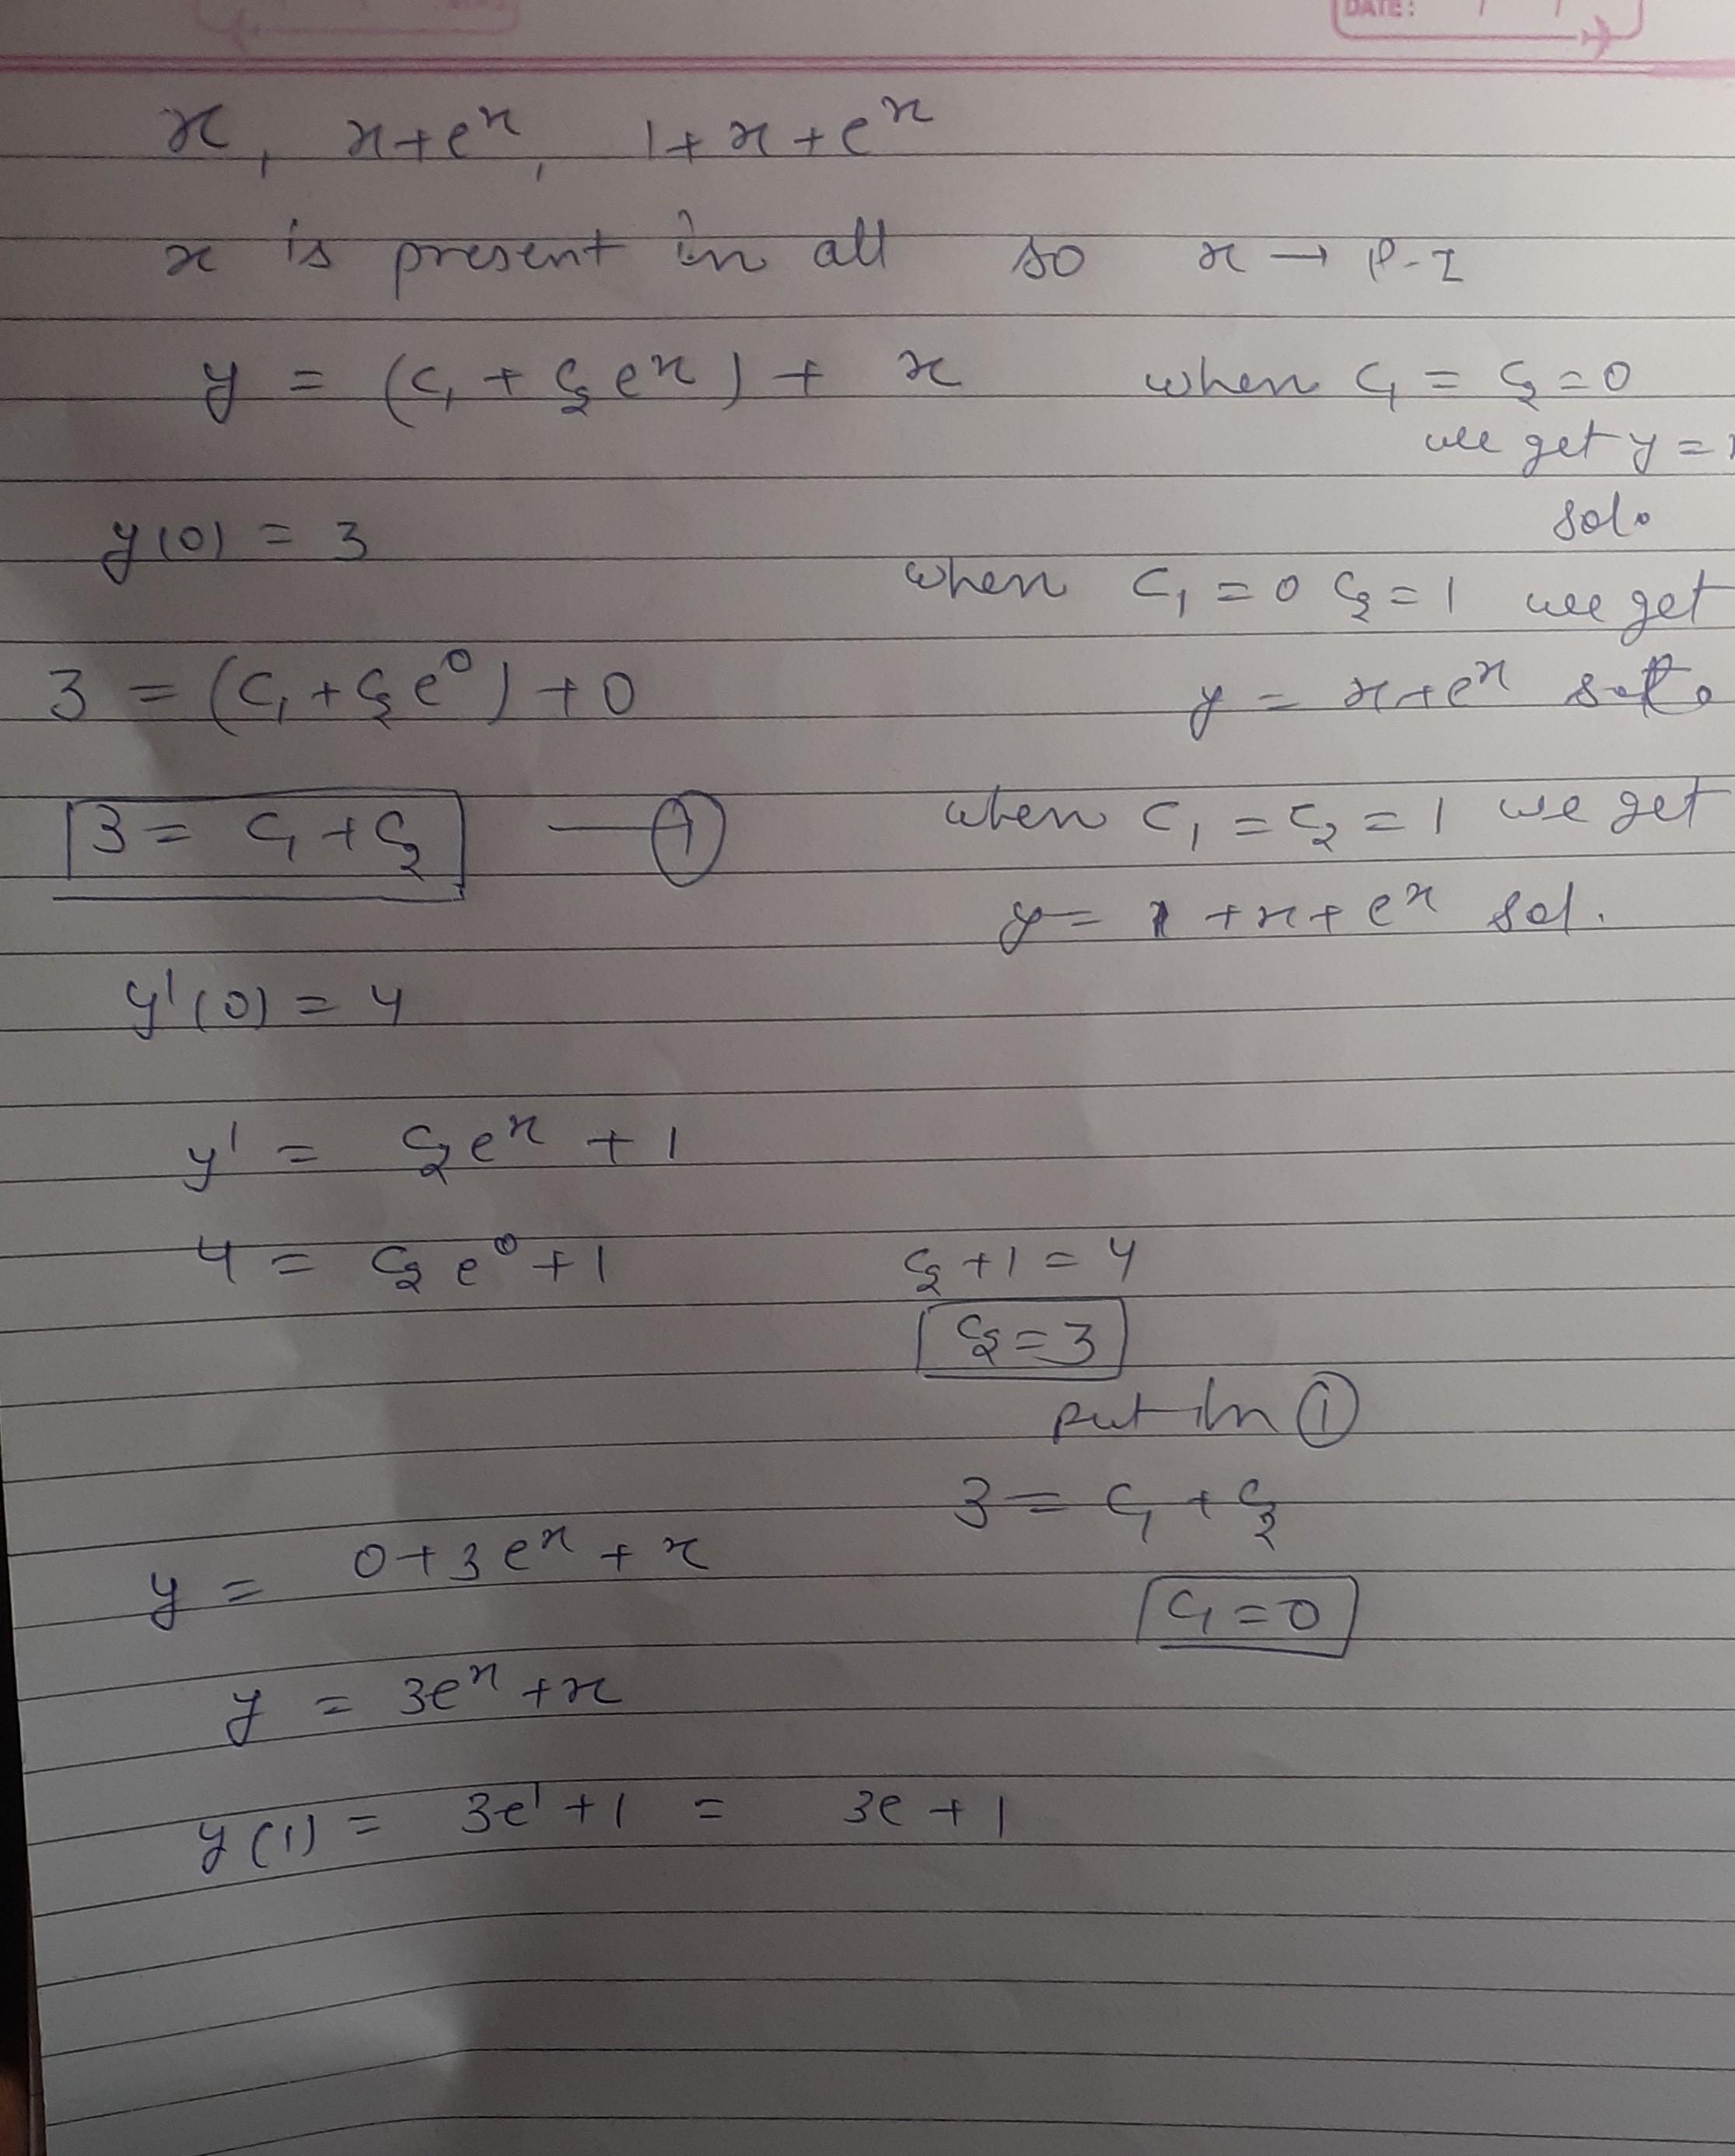 DATE: / /
x, x+eˣ, 1+x+eˣ
x is present in all so x → P-I
y = (c₁ + c₂eˣ) + x when c₁ = c₂ = 0
we get y =
sol.
y(0) = 3
when c₁ = 0 c₂ = 1 we get
3 = (c₁ + c₂e⁰) + 0
y = x+eˣ
3 = c₁ + c₂ — ①
when c₁ = c₂ = 1 we get
y = 1 + x + eˣ sol.
y'(0) = 4
y' = c₂eˣ + 1
4 = c₂e⁰ + 1 c₂ + 1 = 4
c₂ = 3
put in ①
3 = c₁ + c₂
y = 0 + 3eˣ + x
c₁ = 0
y = 3eˣ + x
y(1) = 3e¹ + 1 = 3e + 1